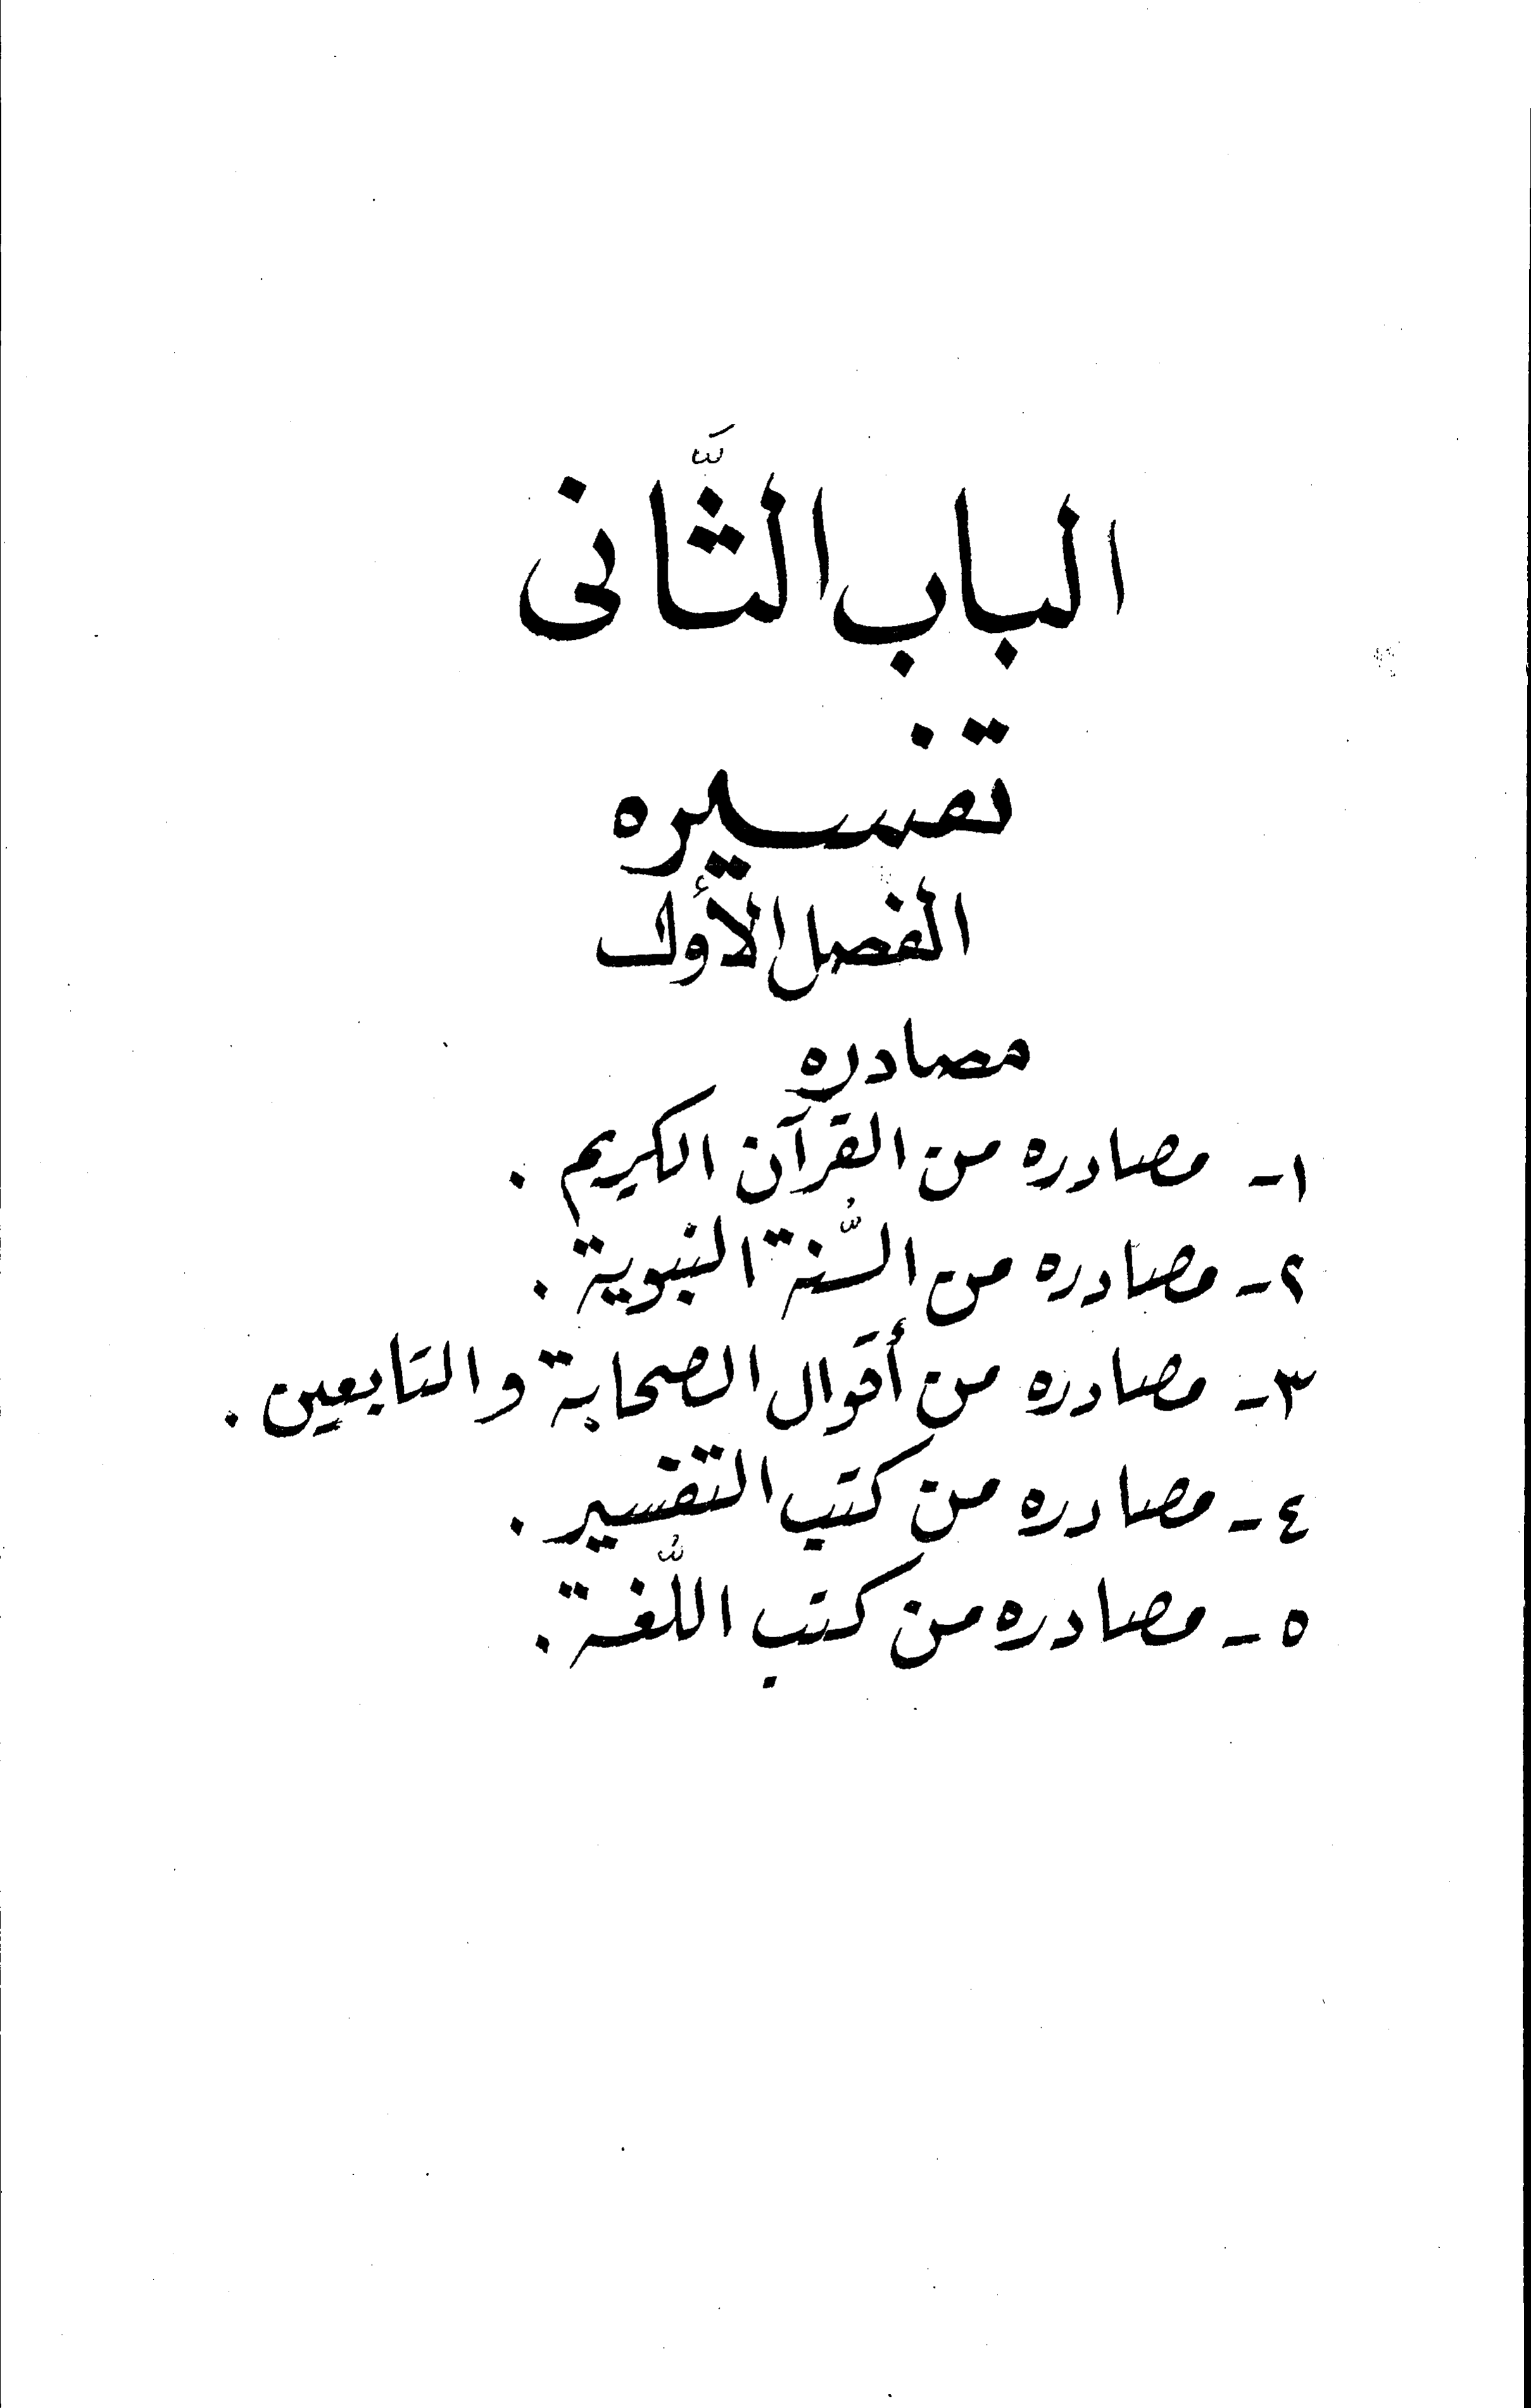 الباب الثَّانى
تفسيره
الفصل الأول
مصادره
١- مصادره من القرآن الكريم .
٢- مصادره من السُّنة النبوية .
٣- مصادره من أقوال الصحابة والتابعين .
٤- مصادره من كتب التفسير .
٥- مصادره من كتب اللُّغة .